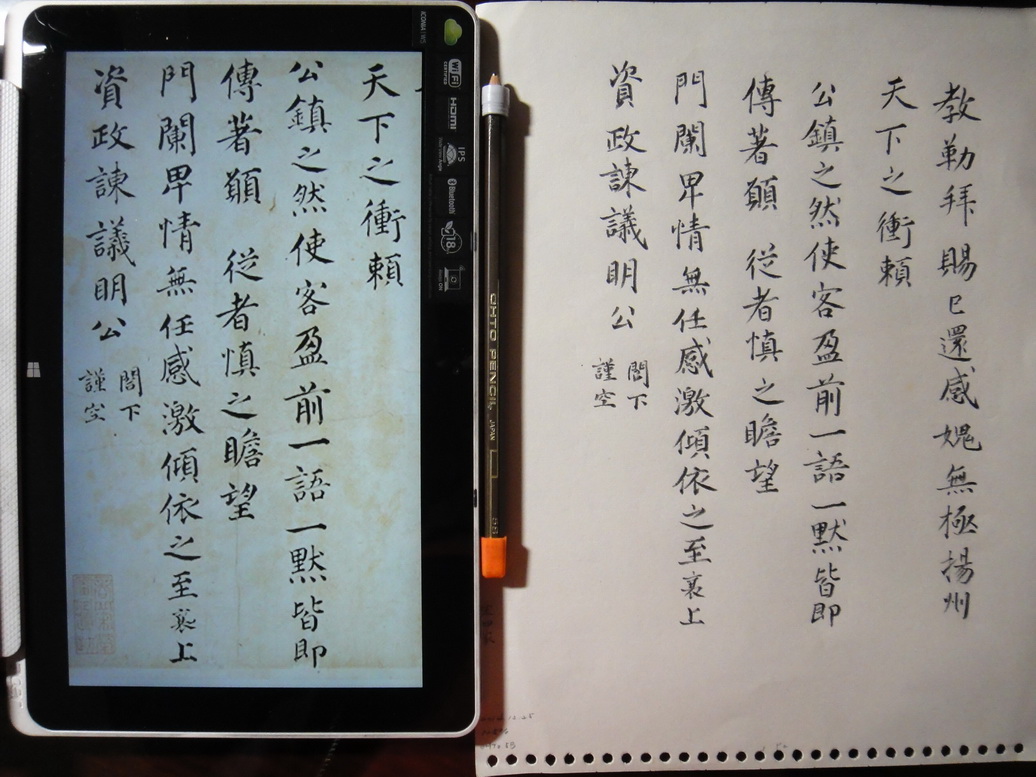 天下之衝賴
公鎮之然使客盈前一語一默皆即
傳著願 從者慎之瞻望
門闌卑情無任感激傾依之至襄上
資政諫議明公
閤下
謹空
ICONIA
WiFi
CERTIFIED
HDMI
IPS
Bluetooth
OHTO PENCIL JAPAN
教勒拜賜已還感媿無極揚州
天下之衝賴
公鎮之然使客盈前一語一默皆即
傳著願 從者慎之瞻望
門闌卑情無任感激傾依之至襄上
資政諫議明公
閤下
謹空